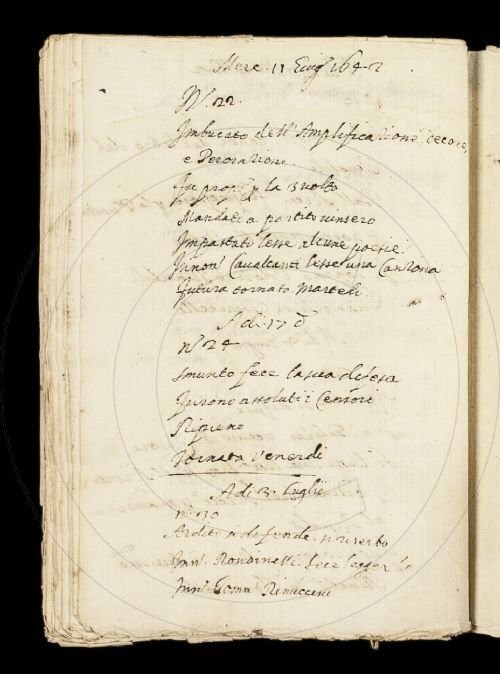 Merc. 11 Giug.º 1642
N.º 22.
Imbucato dell'Amplificazione, decoro,
e Perorazione.
Fu prop.º p la 3 volta
Mandati a partito vinsero
Impastato lesse alcune poesie.
Innom.º Cavalcanti lesse una Canzona
Futura tornata Martedi
A di 17 dº
Nº 24
Smunto fece la sua difesa
Furono assoluti i Censori
Ripieno
Tornata Venerdi
A di 3. Luglio
nº 30
Ardito difende riserbo
Inn.º Rondinelli fece
Inn.º Tomm. Rinuccini